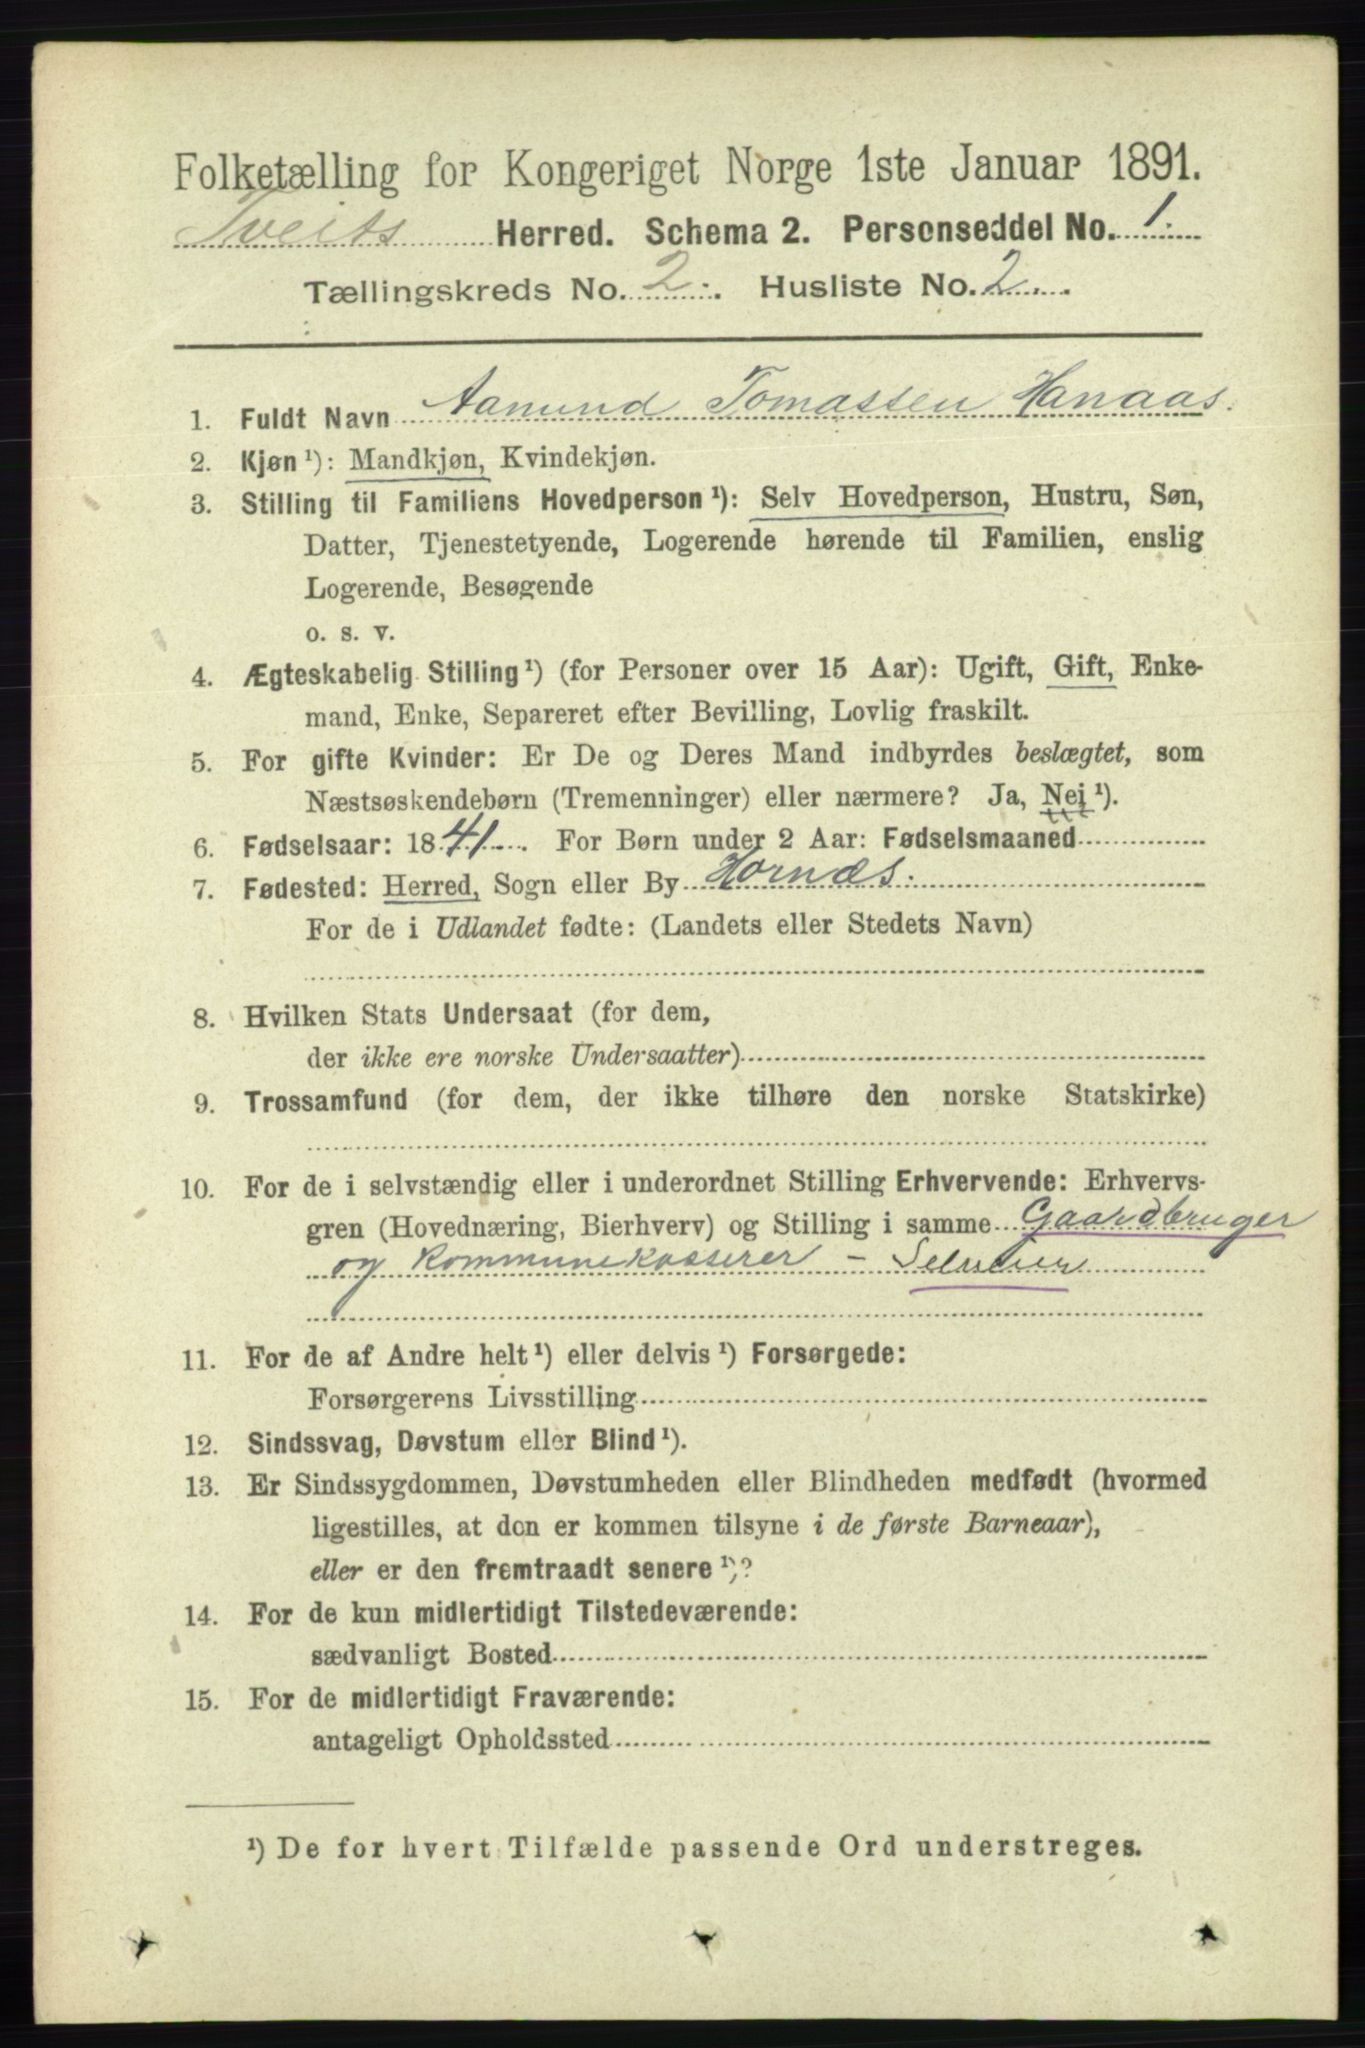 Folketælling for Kongeriget Norge 1ste Januar 1891.
Tveits Herred. Schema 2. Personseddel No. 1.
Tællingskreds No. 2. Husliste No. 2.
1. Fuldt Navn Aamund Tomassen Hanaas.
2. Kjøn ¹): Mandkjøn, Kvindekjøn.
3. Stilling til Familiens Hovedperson ¹): Selv Hovedperson, Hustru, Søn,
Datter, Tjenestetyende, Logerende hørende til Familien, enslig
Logerende, Besøgende
o. s. v.
4. Ægteskabelig Stilling ¹) (for Personer over 15 Aar): Ugift, Gift, Enke-
mand, Enke, Separeret efter Bevilling, Lovlig fraskilt.
5. For gifte Kvinder: Er De og Deres Mand indbyrdes beslægtet, som
Næstsøskendebørn (Tremenninger) eller nærmere? Ja, Nei ¹).
6. Fødselsaar: 1841. For Børn under 2 Aar: Fødselsmaaned
7. Fødested: Herred, Sogn eller By Hornæs.
For de i Udlandet fødte: (Landets eller Stedets Navn)
8. Hvilken Stats Undersaat (for dem,
der ikke ere norske Undersaatter)
9. Trossamfund (for dem, der ikke tilhøre den norske Statskirke)
10. For de i selvstændig eller i underordnet Stilling Erhvervende: Erhvervs-
gren (Hovednæring, Bierhverv) og Stilling i samme Gaardbruger
og kommunekasserer – Selveier
11. For de af Andre helt ¹) eller delvis ¹) Forsørgede:
Forsørgerens Livsstilling
12. Sindssvag, Døvstum eller Blind ¹).
13. Er Sindssygdommen, Døvstumheden eller Blindheden medfødt (hvormed
ligestilles, at den er kommen tilsyne i de første Barneaar),
eller er den fremtraadt senere ¹)?
14. For de kun midlertidigt Tilstedeværende:
sædvanligt Bosted
15. For de midlertidigt Fraværende:
antageligt Opholdssted
¹) De for hvert Tilfælde passende Ord understreges.